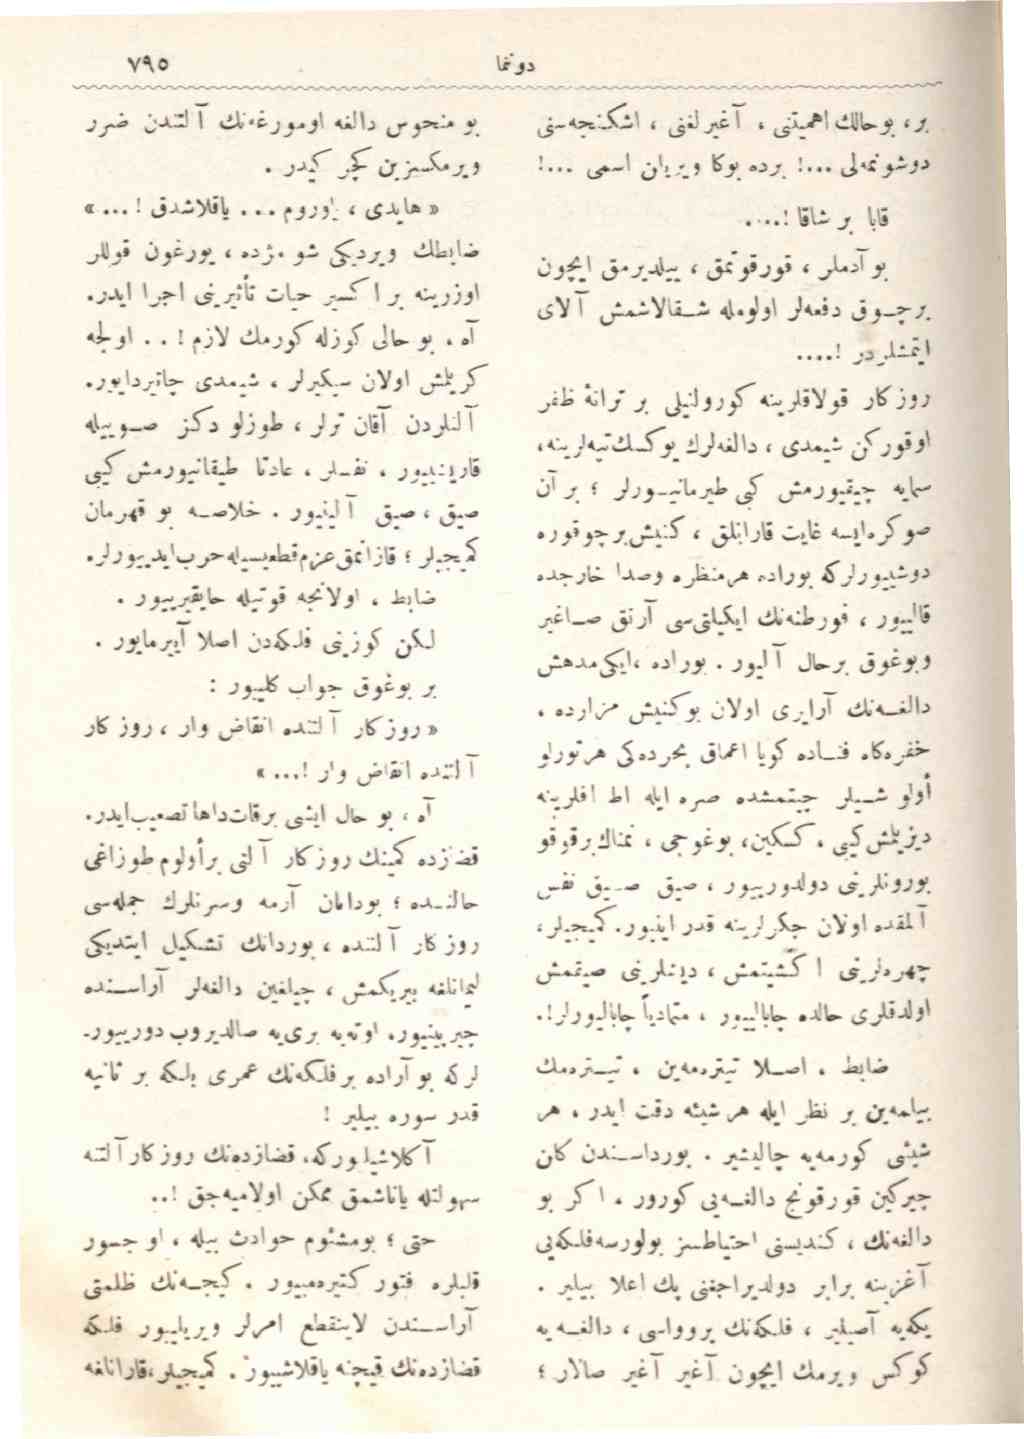 دونما
٧٩٥
بر، بو حالك اهميتنى ، آغيرلغنى ، اشكنجه‌سنى
دوشونمه‌لى ...! برده بوكا ويريلن اسمى ...!
قابا بر شاقا !....
بو آدملر ، قورقوتمق ، ييلديرمق ايچون
برچـوق دفعه‌لر اولومله شـقالاشمش آلاى
ايتمشلردر !....
روزكار قولاقلرينه كورولتيلى بر ترانهٔ ظفر
اوقوركن شيمدى ، دالغه‌لرك يوكسك تپه‌لرينه،
سمايه چيقيورمش كبى طيرمانيـورلر ؛ بر آن
صوكره‌ايسه غايت قارانلق ، كنيش‌برچوقوره
دوشييورلركه بوراده هرمنظره وصدا خارجده
قالييور ، فورطنه‌نك ايكيلتى‌سى آرتق صـاغير
وبوغوق برحال آليور. بوراده ،ايكى‌مدهش
دالغـه‌نك آرايرى اولان بوكنيش مزارده ،
حفره‌كاه فنـاده كويا اعماق بحرده‌كى هرتورلو
أولو شـيلر جيتمشده صره ايله اط افلرينه
ديزيلمش‌كبى ، كسكين، بوغوجى ، نمناك‌برقوقو
بورونلرينى دولدورييور ، صيق صـيق نفس
آلمقده اولان جكرلرينه قدر اينيور. كميجيلر،
چهره‌لرينى اكشيتمش ، ديشلرينى صيقمش
اولدقلرى حالده چابالييور ، متمادياً چاباليورلر!.
ضابط ، اصـلا تيتره‌مه‌ين ، تيـتره‌مك
بيلمه‌ين بر نظر ايله هر شيئه دقت ايدر ، هر
شيئى كورمه‌يه چاليشير . بورداسـندن كلن
چيركين قورقونج دالغـه‌يى كورور . اكر بو
دالغه‌نك ، كنديسنى احتياطسز بولورسه فلكه‌يى
آغزينه برابر دولديراجغنى پك اعلا بيلير .
يكه‌يه آصيلير ، فلكه‌نك پروواسى ، دالغـه‌يه
كوكس ويرمك ايچون آغير آغير صالار ؛
بو منحوس دالغه اوموزغه‌نك آلتندن ضرر
ويرمكسزين كچر كيدر .
« هايدى ، ياوروم ... ياقلاشدق !... »
ضابطك ويرديكى شو مژده ، يورغون قوللر
اوزرينه بر اكسير حيات تأثيرينى اجرا ايدر.
آه ، بو حالى كوزله كورمك لازم ! .. اولجه
كريلمش اولان سيكيرلر ، شيمدى چاتيردايور.
آلنلردن آقان ترلر ، طوزلو دكز صـوييله
قارينييور ، نفسلر ، عادتا طيقانيورمش كيى
صيق ، صيق آلينيور . خلاصـه بو قهرمان
كميجيلر ؛ قازانمق‌عزم‌قطعيسيله‌حرب‌ايدييورلر.
ضابط ، اولانجه قوتيله حايقيرييور .
لكن كوزينى فلكه‌دن اصلا آييرمايور .
بر بوغوق جواب كلييور :
« روزكار آلتنده انقاض وار ، روزكار
آلتنده انقاض وار !... »
آه ، بو حال ايشى برقات‌داها تصعيب‌ايدر.
قضازده كمينك روزكار آلتى برأولوم طوزاغى
حالنـده ؛ بودامان آرمه وسرنلرك جمله‌سى
روزكار آلتنده ، بوردانك تشكيل ايتديكى
ليمانلغه بيريكمش ، چيلغين دالغه‌لر آراسـنده
چيرپينيور. اوته‌يه برى‌يه صالديروب دورييور-
لركه بو آراده برفلكه‌نك عمرى بلكه بر ثانيه
قدر سوره بيلير !
آكلاشيليوركه، قضازده‌نك روزكار آلتنه
سهولتله ياناشمق ممكن اولاميه‌جق !..
حتى ؛ بومشئوم حوادث بيله ، او جسور
قلبلره فتور كتيره‌مييور . كيجـه‌نك ظلمتى
آراسـندن لاينقطع امرلر ويريلييور فلكه
قضازده‌نك قيچنه ياقلاشييور. كميجيلر،قارانلغه